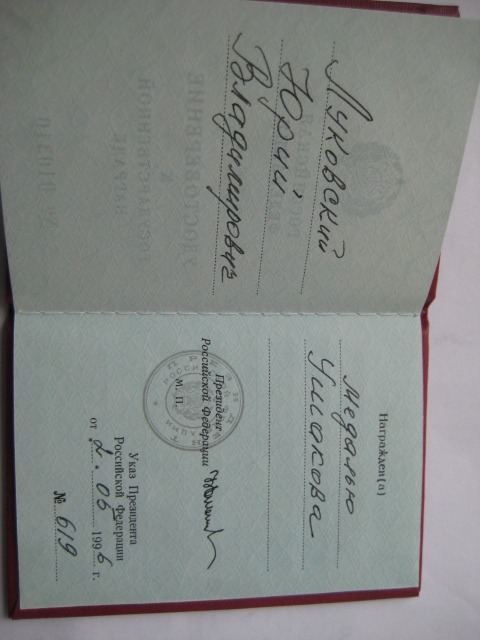 Луковский
Юрий
Владимирович
Награжден(а)
медалью
Ушакова
Президент
Российской Федерации
М. П.
Указ Президента
Российской Федерации
от 2.05 1996 г.
№ 619